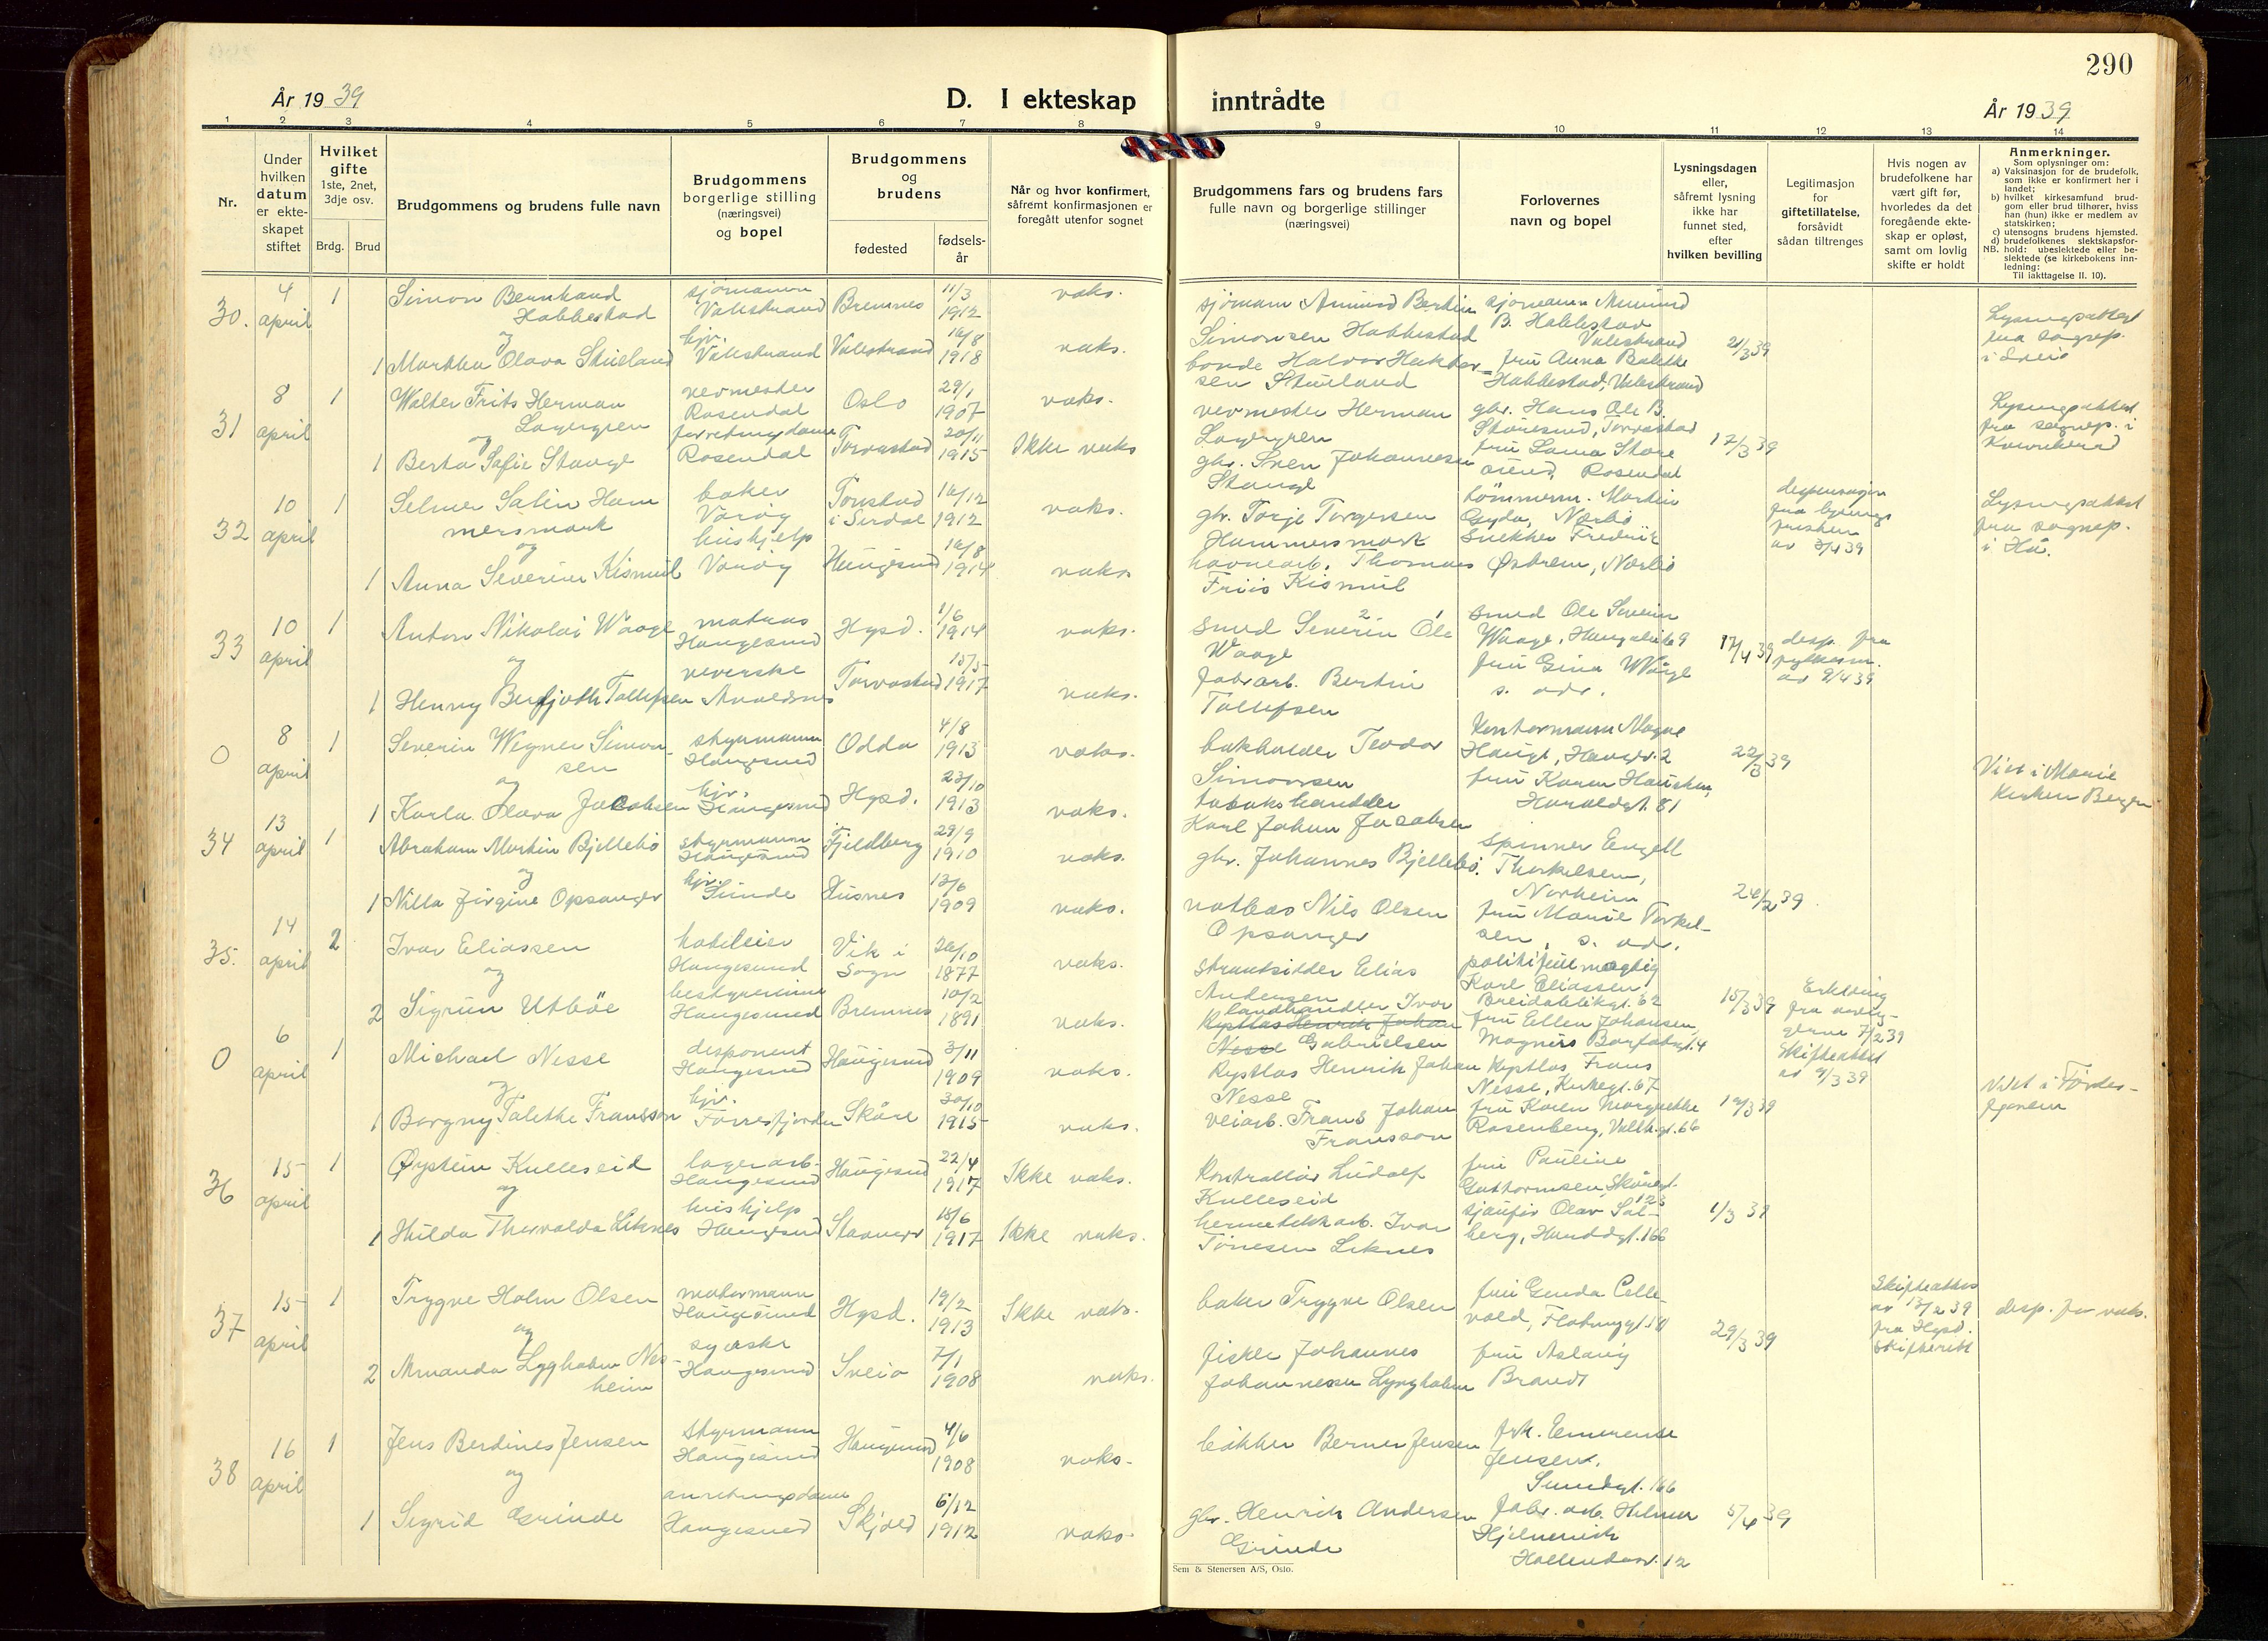 290
År 1939
D. I ekteskap inntrådte
År 1939
1 2 3 4 5 6 7 8 9 10 11 12 13 14
Nr.
Under
hvilken
datum
er ekte-
skapet
stiftet
Hvilket
gifte
1ste, 2net,
3dje osv.
Brdg. Brud
Brudgommens og brudens fulle navn
Brudgommens
borgerlige stilling
(næringsvei)
og bopel
Brudgommens
og
brudens
fødested
fødsels-
år
Når og hvor konfirmert,
såfremt konfirmasjonen er
foregått utenfor sognet
Brudgommens fars og brudens fars
fulle navn og borgerlige stillinger
(næringsvei)
Forlovernes
navn og bopel
Lysningsdagen
eller,
såfremt lysning
ikke har
funnet sted,
efter
hvilken bevilling
Legitimasjon
for
giftetillatelse,
forsåvidt
sådan tiltrenges
Hvis nogen av
brudefolkene har
vært gift før,
hvorledes da det
foregående ekte-
skap er opløst,
samt om lovlig
skifte er holdt
Anmerkninger.
Som oplysninger om:
a) Vaksinasjon for de brudefolk,
som ikke er konfirmert her i
landet;
b) hvilket kirkesamfund brud-
gom eller brud tilhører, hviss
han (hun) ikke er medlem av
statskirken;
c) utensogns brudens hjemsted.
d) brudefolkenes slektskapsfor-
NB. hold: ubeslektede eller be-
slektede (se kirkebokens inn-
ledning:
Til iakttagelse II. 10).
30.
4
april
1
Simon Bernhard
Habbestad
og
1 Martha Olava Stueland
sjømann
Valestrand
hjv.
Valestrand
Bremnes
Valestrand
11/3
1912
16/8
1918
vaks.
vaks.
sjømann Amund Bertin
Simonsen Habbestad
bonde Halvor Hakker-
sen Stueland
sjømann Amund
B. Habbestad
Valestrand
fru Anna Bolette
Habbestad, Valestrand
21/3 39
Lysingsattest
fra sogнep.
i Sveio
31
8
april
1
Walter Frits Herman
Lagergren
og
1 Berta Sofie Stange
vevmester
Rosendal
forretningsdame
Rosendal
Oslo
Torvastad
29/1
1907
20/11
1915
vaks.
Ikke vaks
vevmester Herman
Lagergren
gbr. Sven Johannesen
Stange
gbr. Hans Ole B.
Storesund, Torvastad
fru Lama Store
sund, Rosendal
17/3 39
Lysingsattest
fra sognep. i
Kvinnherad
32
10
april
1
Selmer Salin Ham
mersmark
og
1 Anna Severine Kismul
baker
Varøy
hushjelp
Varøy
Tonstad
i Sirdal
Haugesund
16/12
1912
16/8
1914
vaks.
vaks
gbr. Torje Torgersen
Hammersmark
havnearb. Thomas
Friis Kismul
tømmerm. Martin
Gyda, Nærbø
Snekker Fredrik
Østrem, Nærbø
dispensasjon
fra lysings
fristen
av 3/4 39
Lysingsattest
fra sognep.
i Hå.
33
10
april
1
Anton Nikolai Waage
og
1 Henny Bergjoth Tollefsen
matros
Haugesund
veverske
Avaldsnes
Hgsd.
Torvastad
1/6
1914
15/5
1917
vaks.
vaks.
smed Severin Ole
Waage
fabrarb. Bertin
Tollefsen
smed Ole Severin
Waage, Haugalei 69
fru Gina Waage
s. adr.
17/4 39
desp. fra
fylkesm.
av 9/4 39
0
8
april
1
Severin Wegner Simon-
sen
og
1 Karla Olava Jacobsen
styrmann
Haugesund
hjv.
Haugesund
Odda
Hgsd.
4/8
1913
23/10
1913
vaks.
vaks.
bokholder Teodor
Simonsen
tobakshandler
Karl Johan Jacobsen
Kontormann Magne
Hauge, Haugr. 2
fru Karen Hausken,
Haraldgt. 81
22/3 39
Viet i Marie
Kirken Bergen
34
13
april
1
Abraham Martin Bjellebø
og
1 Nilla Jørgine Opsanger
styrmann
Haugesund
hjv.
Sunde
Fjeldberg
Husnes
29/9
1910
13/6
1909
vaks.
vaks.
gbr. Johannes Bjellebø.
notbas Nils Olsen
Opsanger
spinner Engell
Thorkelsen,
Norheim
fru Marie Torkel-
sen, s. adr.
24/2 39
35.
14
april
2
Ivar Eliassen
og
2 Sigrun Utbøe
hoteleier
Haugesund
bestyrerinne
Haugesund
Vik i
Sogn
Bremnes
26/10
1877
10/2
1891
vaks.
vaks.
strandsidder Elias
Andersen
landhandler Ivar
Kystlos Henrik Johan
Nesse Gabrielsen
politifullmægtig
Karl Eliassen,
Breidablikgt. 62
fru Ellen Johansen,
Magnus Barfotsgt. 4
15/3 39
Erklæring
fra
7/2 39
Skifteattest
av 9/3 39
0
6
april
1
Michael Nesse
og
1 Borgny Talette Fransson
disponent
Haugesund
hjv.
Førresfjorden
Haugesund
Skåre
3/11
1909
30/10
1915
vaks.
vaks.
Kystlos Henrik Johan
Nesse
veiarb. Frans Johan
Fransson
Kystlos Frans
Nesse, Kirkegt. 67
fru Karen Margrethe
Rosenberg, Vallh.gt. 66
14/3 39
Viet i Førdes-
fjorden
36
15
april
1
Øystein Kulleseid
og
1 Hilda Thorvalda Leknes
lagerarb.
Haugesund
hushjelp
Haugesund
Haugesund
Stavanger
22/4
1917
18/6
1917
Ikke vaks.
Ikke vaks.
Kontrollør Ludolf
Kulleseid
hermetikkarb. Ivar
Tønesen Leknes
fru Pauline
Guttormsen, Skåregt.
123
sjåufør Olav Sol-
berg, Haraldgt. 166
1/3 39
37
15
april
1
Trygve Holm Olsen
og
2 Amanda Lyngholm Nes-
heim
motormann
Haugesund
syerske
Haugesund
Hgsd.
Sveio
19/2
1913
7/1
1908
Ikke vaks.
vaks.
baker Trygve Olsen
fisker Johannes
Johannesen Lyngholm
fru Gerda Colle-
vold, Flotmyrgt. 101
fru Aslaug
Brandt
29/3 39
Skifteattest
av 13/2 39
fra Hgsd.
Skifterett
desp. for vaks.
38
16
april
1
Jens Berdines Jensen
og
1 Sigrid Grinde
styrmann
Haugesund
anretningsdame
Haugesund
Haugesund
Skjold
4/6
1908
6/12
1912
vaks.
vaks.
bøkker Berner Jensen
gbr. Henrik Andersen
Grinde
frk. Emerense
Jensen,
Sundgt. 166
fabr. arb. Helmer
Hjelmervik
Hollendarv. 12
5/4 39
Sem & Stenersen A/S, Oslo.